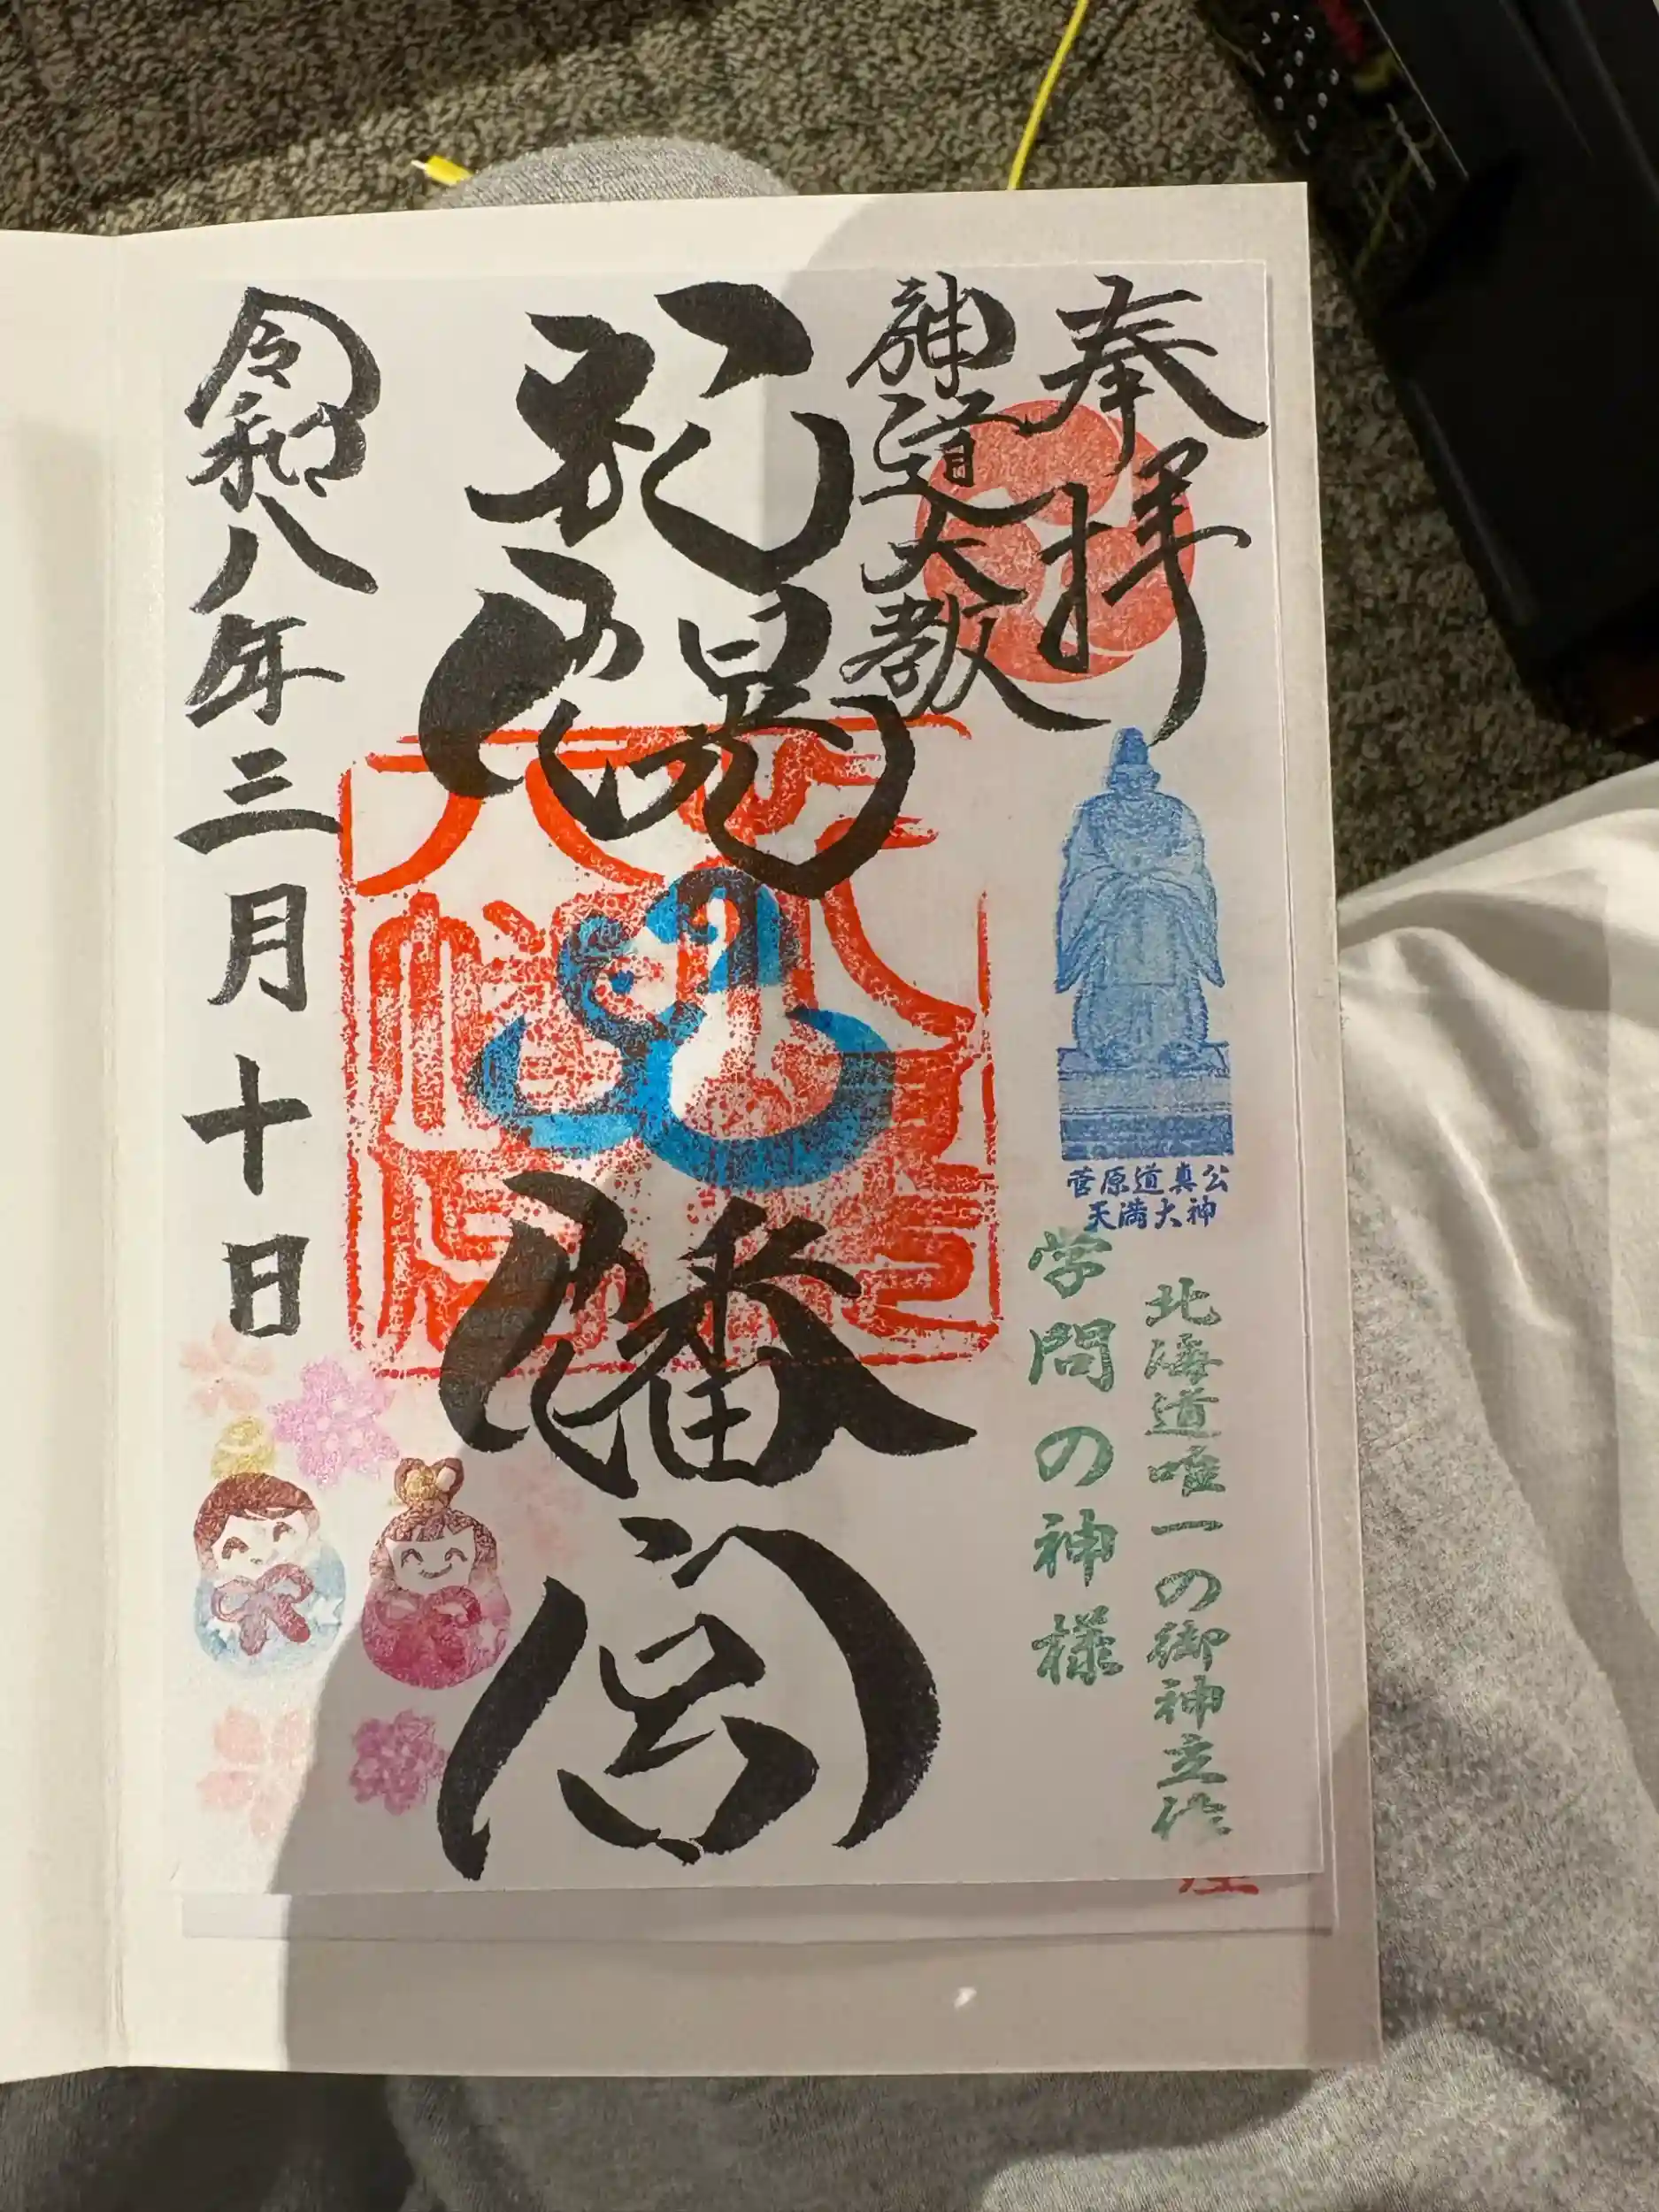 奉拝
神道大教
札幌八幡宮
令和八年三月十日
菅原道真公
天満大神
北海道唯一の御神立像
学問の神様